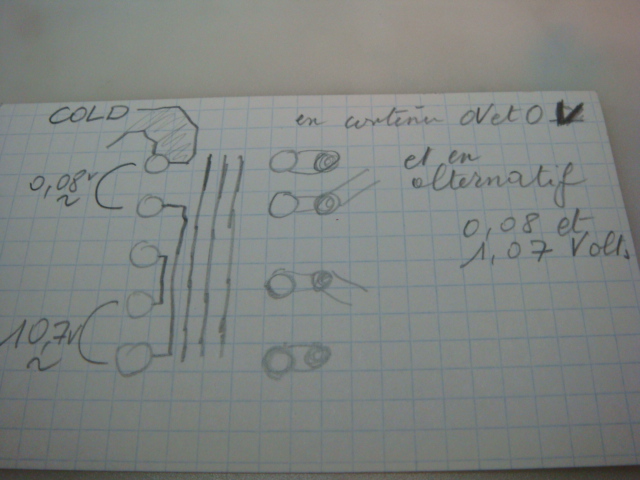 COLD
en continu 0V et 0 V
et en
alternatif
0,08 et
1,07 Volts
0,08 v
~
10,7 v
~